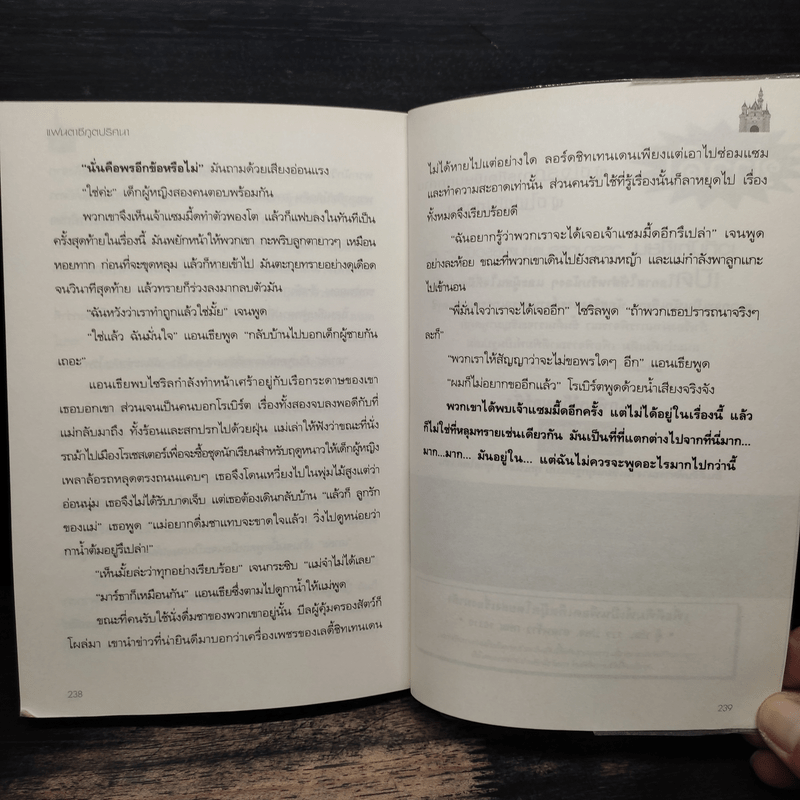 แฟนตาซีภูตปริศนา
"นั่นคือพรอีกข้อหรือไม่" มันถามด้วยเสียงอ่อนแรง
"ใช่ค่ะ" เด็กผู้หญิงสองคนตอบพร้อมกัน
พวกเขาจึงเห็นเจ้าแซมมี้ดทำตัวพองโต แล้วก็แฟบลงในทันทีเป็น
ครั้งสุดท้ายในเรื่องนี้ มันพยักหน้าให้พวกเขา กะพริบลูกตายาวๆ เหมือน
หอยทาก ก่อนที่จะขุดหลุม แล้วก็หายเข้าไป มันตะกุยทรายอย่างดุเดือด
จนวินาทีสุดท้าย แล้วทรายก็ร่วงลงมากลบตัวมัน
"ฉันหวังว่าเราทำถูกแล้วใช่มั้ย" เจนพูด
"ใช่แล้ว ฉันมั่นใจ" แอนเธียพูด "กลับบ้านไปบอกเด็กผู้ชายกัน
เถอะ"
แอนเธียพบไซริลกำลังทำหน้าเศร้าอยู่กับเรือกระดาษของเขา
เธอบอกเขา ส่วนเจนเป็นคนบอกโรเบิร์ต เรื่องทั้งสองจบลงพอดีกับที่
แม่กลับมาถึง ทั้งร้อนและสกปรกไปด้วยฝุ่น แม่เล่าให้ฟังว่าขณะที่นั่ง
รถม้าไปเมืองโรเชสเตอร์เพื่อจะซื้อชุดนักเรียนสำหรับฤดูหนาวให้เด็กผู้หญิง
เพลาล้อรถหลุดตรงถนนแคบๆ เธอจึงโดนเหวี่ยงไปในพุ่มไม้สูงแต่ว่า
อ่อนนุ่ม เธอจึงไม่ได้รับบาดเจ็บ แต่เธอต้องเดินกลับบ้าน "แล้วก็ ลูกรัก
ของแม่" เธอพูด "แม่อยากดื่มชาแทบจะขาดใจแล้ว! วิ่งไปดูหน่อยว่า
กาน้ำต้มอยู่รึเปล่า!"
"เห็นมั้ยล่ะว่าทุกอย่างเรียบร้อย" เจนกระซิบ "แม่จำไม่ได้เลย"
"มาร์ธาก็เหมือนกัน" แอนเธียซึ่งตามไปดูกาน้ำให้แม่พูด
ขณะที่คนรับใช้นั่งดื่มชาของพวกเขาอยู่นั้น บีลผู้คุ้มครองสัตว์ก็
โผล่มา เขานำข่าวที่น่ายินดีมาบอกว่าเครื่องเพชรของเลดี้ชิทเทนเดน
238
ไม่ได้หายไปแต่อย่างใด ลอร์ดชิทเทนเดนเพียงแต่เอาไปซ่อมแซม
และทำความสะอาดเท่านั้น ส่วนคนรับใช้ที่รู้เรื่องนั้นก็ลาหยุดไป เรื่อง
ทั้งหมดจึงเรียบร้อยดี
"ฉันอยากรู้ว่าพวกเราจะได้เจอเจ้าแซมมี้ดอีกรึเปล่า" เจนพูด
อย่างละห้อย ขณะที่พวกเขาเดินไปยังสนามหญ้า และแม่กำลังพาลูกแกะ
ไปเข้านอน
"พี่มั่นใจว่าเราจะได้เจออีก" ไซริลพูด "ถ้าพวกเธอปรารถนาจริงๆ
ละก็"
"พวกเราให้สัญญาว่าจะไม่ขอพรใดๆ อีก" แอนเธียพูด
"ผมก็ไม่อยากขออีกแล้ว" โรเบิร์ตพูดด้วยน้ำเสียงจริงจัง
พวกเขาได้พบเจ้าแซมมี้ดอีกครั้ง แต่ไม่ได้อยู่ในเรื่องนี้ แล้ว
ก็ไม่ใช่ที่หลุมทรายเช่นเดียวกัน มันเป็นที่ที่แตกต่างไปจากที่นี่มาก...
มาก...มาก... มันอยู่ใน... แต่ฉันไม่ควรจะพูดอะไรมากไปกว่านี้
239